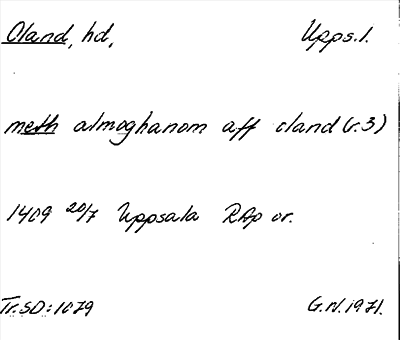 Oland, hd, Upps.l.
meth almoghanom aff oland (r.3)
1409 20/7 Uppsala RAp or.
Tr. SD: 1079 G.N. 1971.